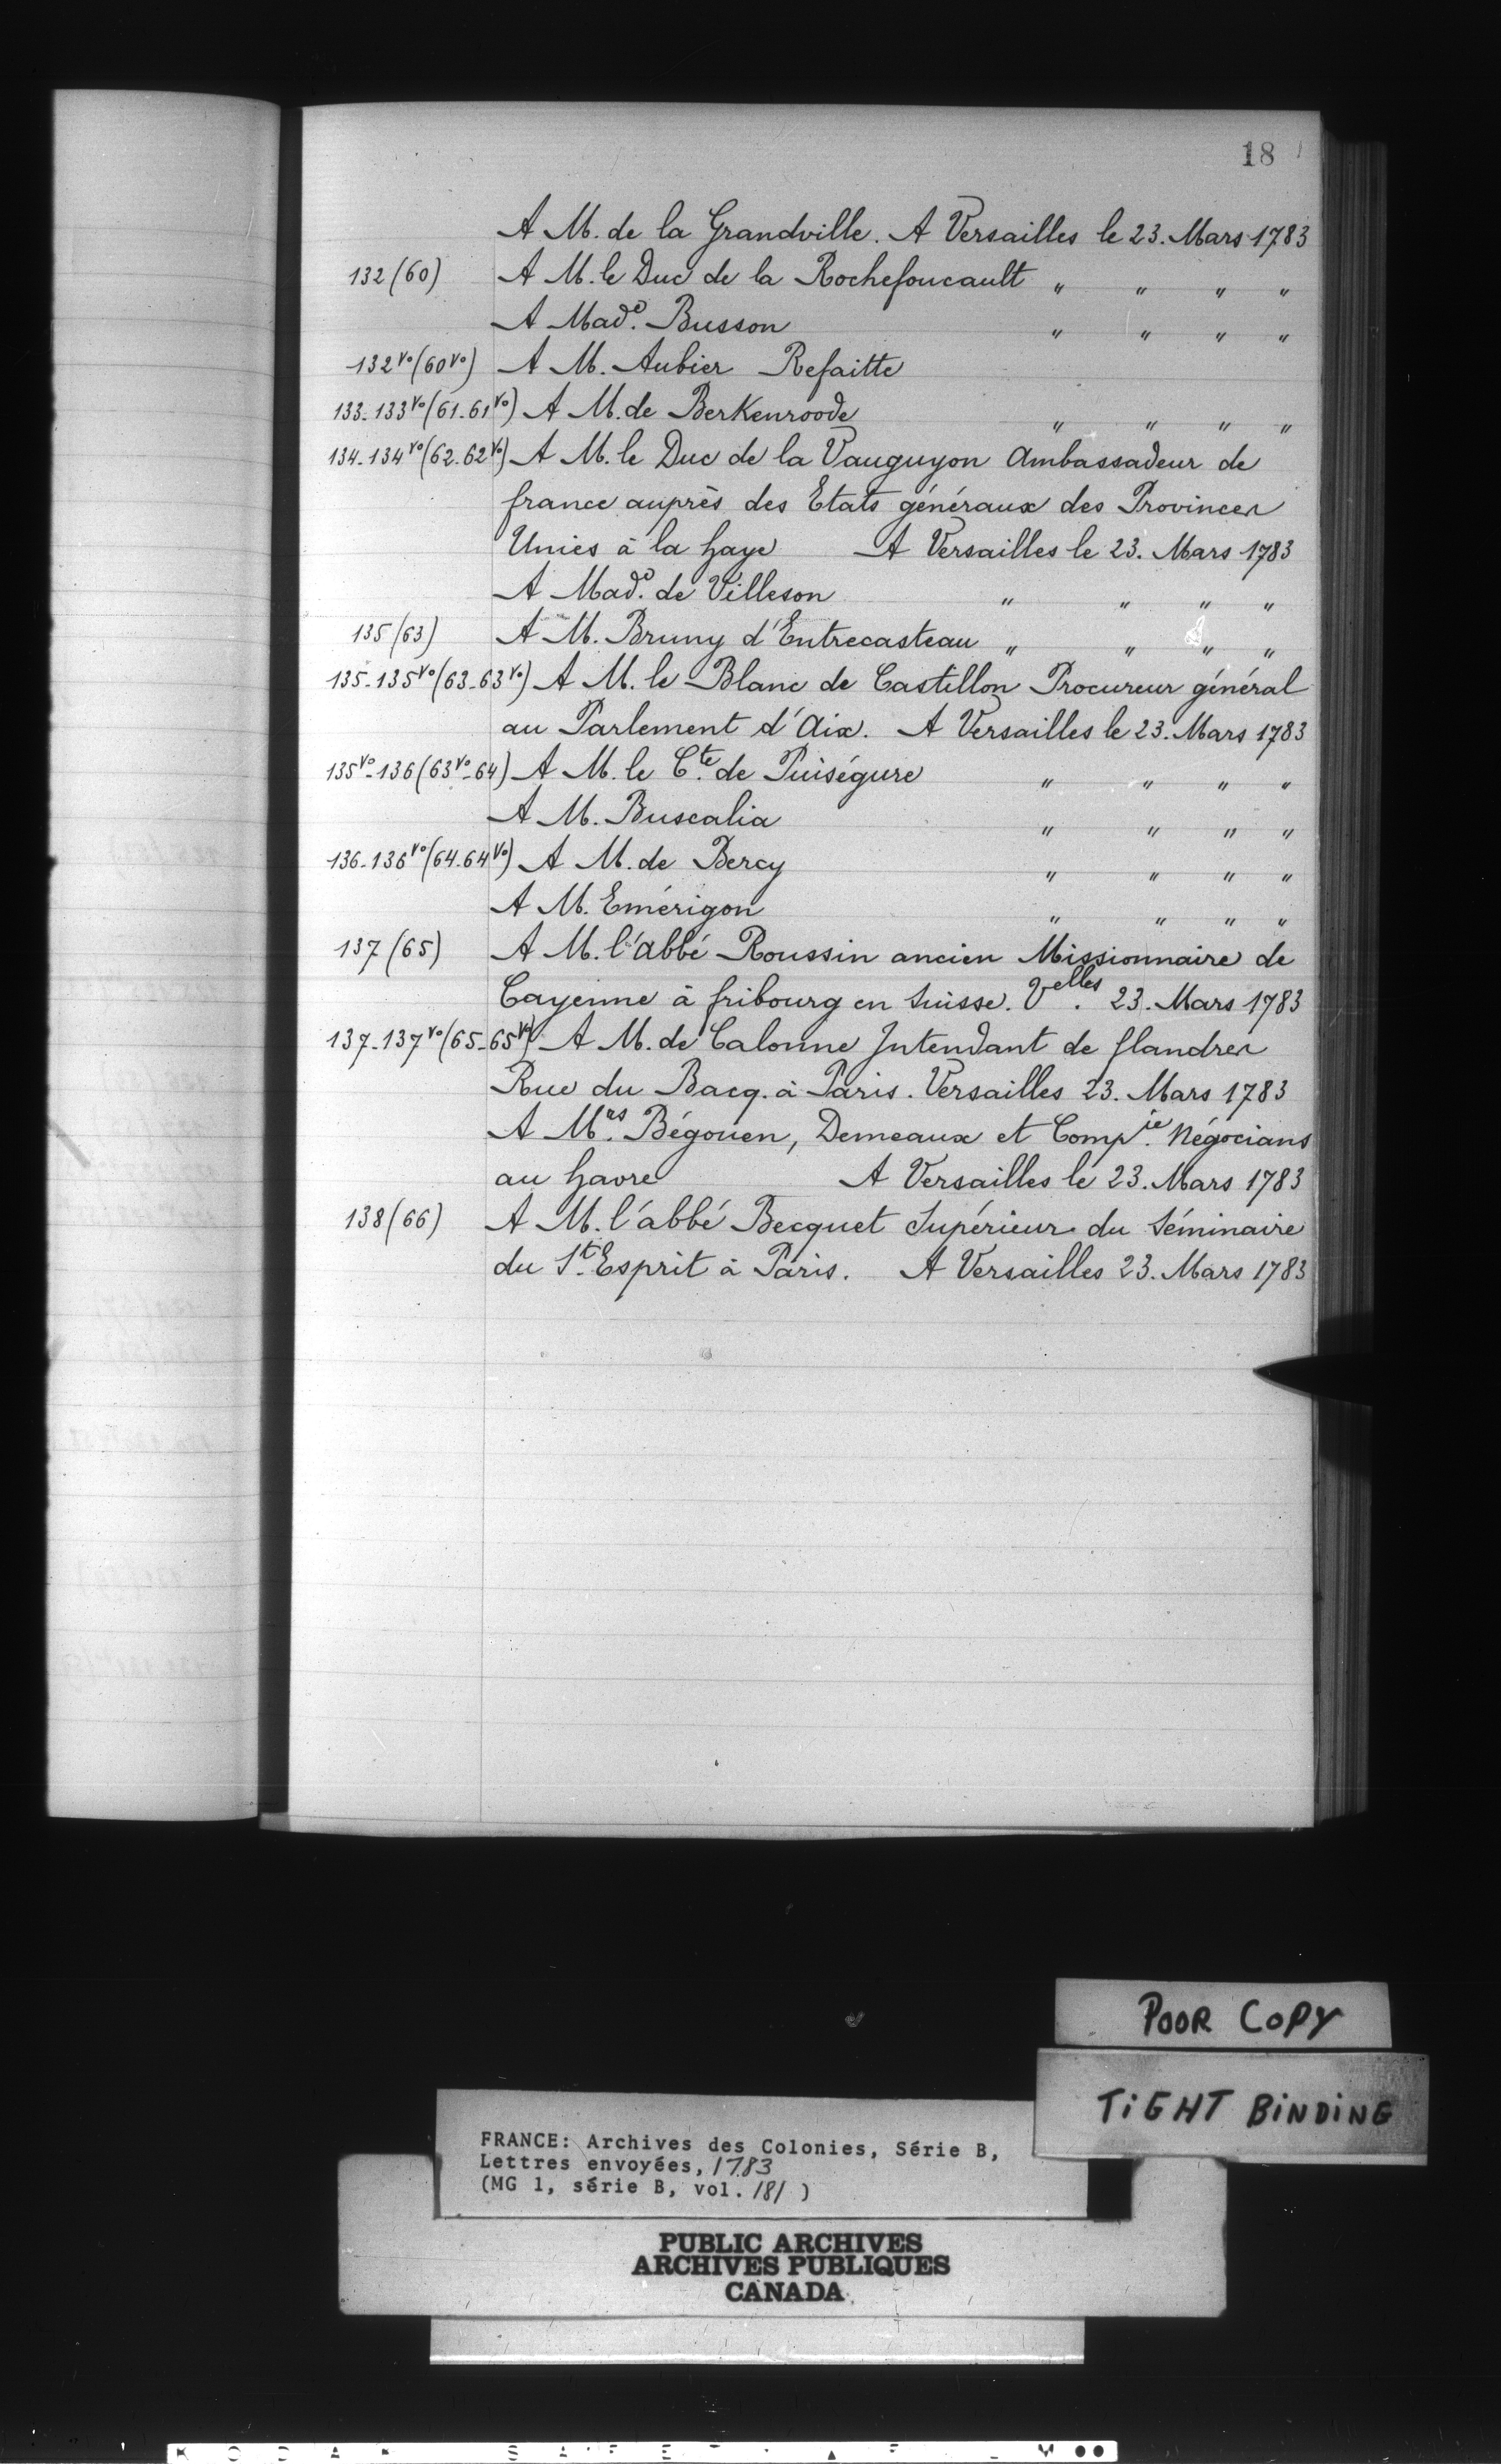 18
A M. de la Grandville. A Versailles le 23. Mars 1783
132 (60) A M. le Duc de la Rochefoucault " " " "
A Mad.e Busson " " " "
132 vo (60 vo) A M. Aubier Refaitte
133-133 vo (61-61 vo) A M. de Berkenroode " " " "
134-134 vo (62-62 vo) A M. le Duc de la Vauguyon Ambassadeur de
france auprès des Etats généraux des Provinces
Unies à la haye A Versailles le 23. Mars 1783
A Mad.e de Villeson " " " "
135 (63) A M. Bruny d'Entrecasteau " " " "
135-135 vo (63-63 vo) A M. le Blanc de Castillon Procureur général
au Parlement d'Aix. A Versailles le 23. Mars 1783
135 vo-136 (63 vo-64) A M. le C.te de Puiségure " " " "
A M. Buscalia " " " "
136-136 vo (64-64 vo) A M. de Bercy " " " "
A M. Emérigon " " " "
137 (65) A M. l'abbé Roussin ancien Missionnaire de
Cayenne à fribourg en Suisse. Velles. 23. Mars 1783
137-137 vo (65-65 vo) A M. de Calonne Intendant de flandres
Rue du Bacq. à Paris. Versailles 23. Mars 1783
A M.rs Bégouen, Demeaux et Comp.ie Négocians
au havre A Versailles le 23. Mars 1783
138 (66) A M. l'abbé Becquet Supérieur du Séminaire
du St. Esprit à Paris. A Versailles 23. Mars 1783
POOR COPY
TIGHT BINDING
FRANCE: Archives des Colonies, Série B,
Lettres envoyées, 1783
(MG 1, série B, vol. 181 )
PUBLIC ARCHIVES
ARCHIVES PUBLIQUES
CANADA